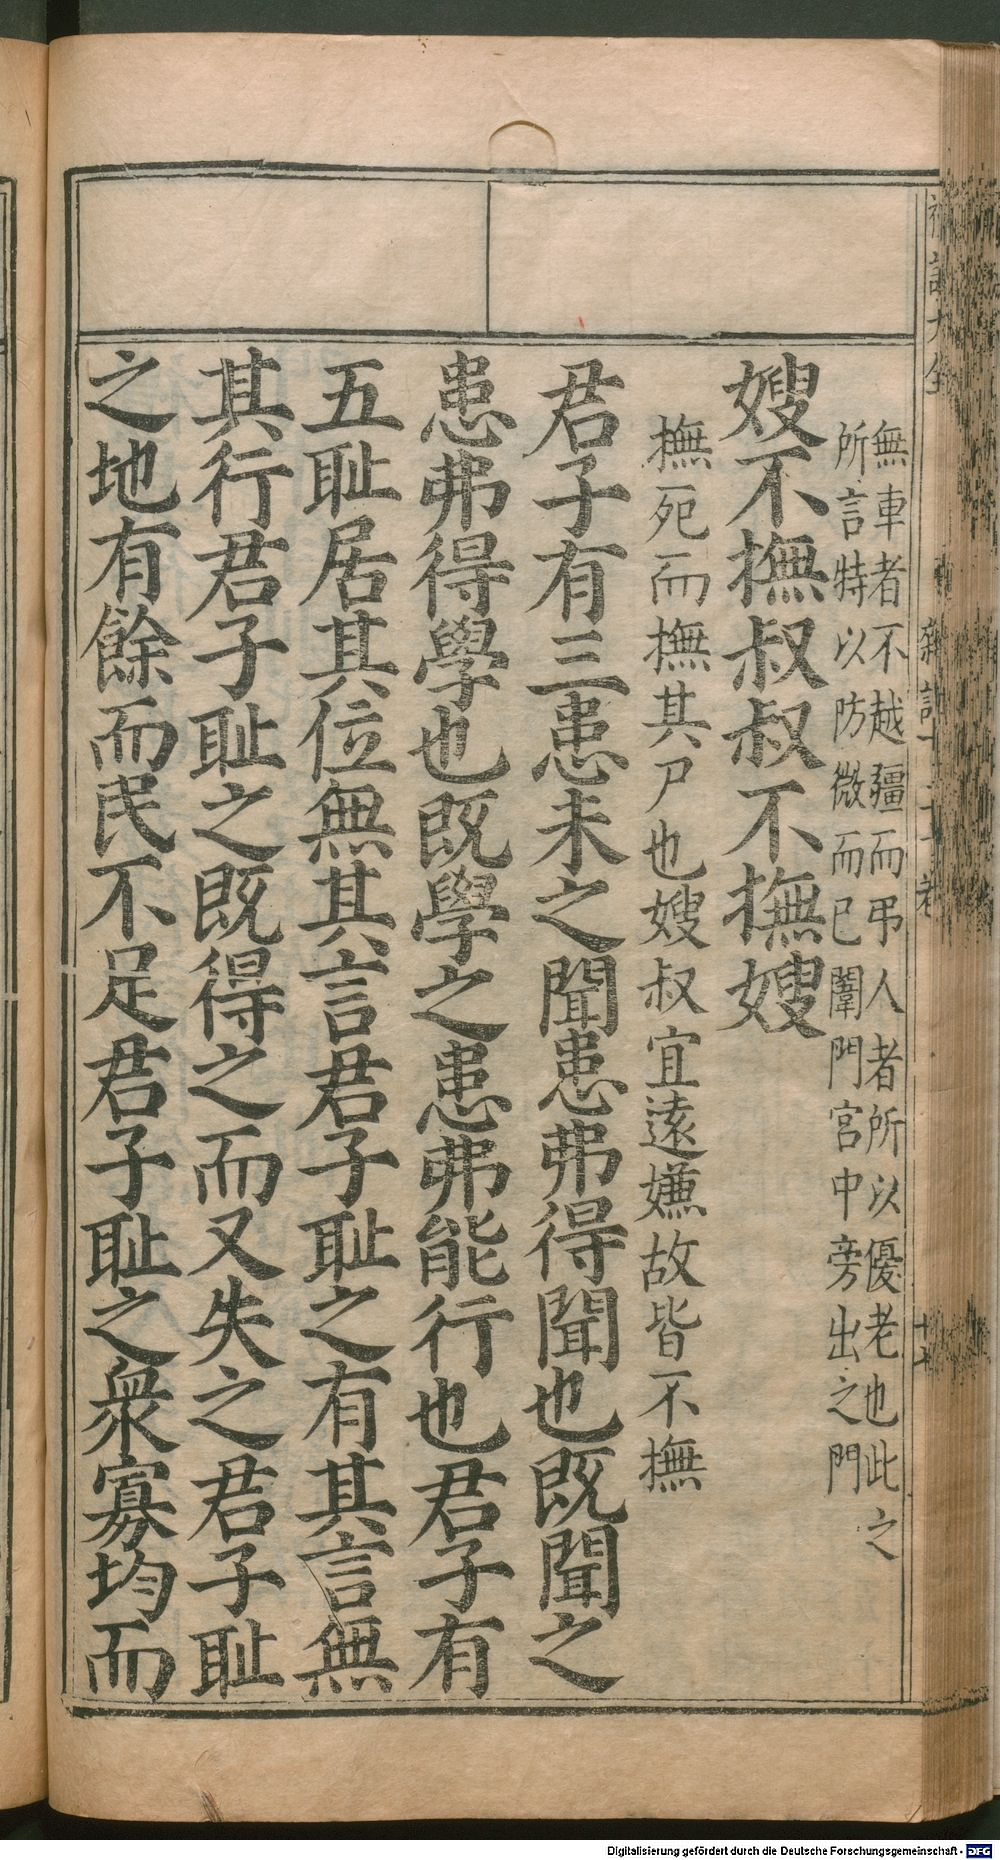 無車者不越疆而弔人者所以優老也此之
所言特以防微而已闈門宮中旁出之門
嫂不撫叔叔不撫嫂
撫死而撫其尸也嫂叔宜遠嫌故皆不撫
君子有三患未之聞患弗得聞也既聞之
患弗得學也既學之患弗能行也君子有
五恥居其位無其言君子恥之有其言無
其行君子恥之既得之而又失之君子恥
之地有餘而民不足君子恥之衆寡均而
Digitalisierung gefördert durch die Deutsche Forschungsgemeinschaft - DFG